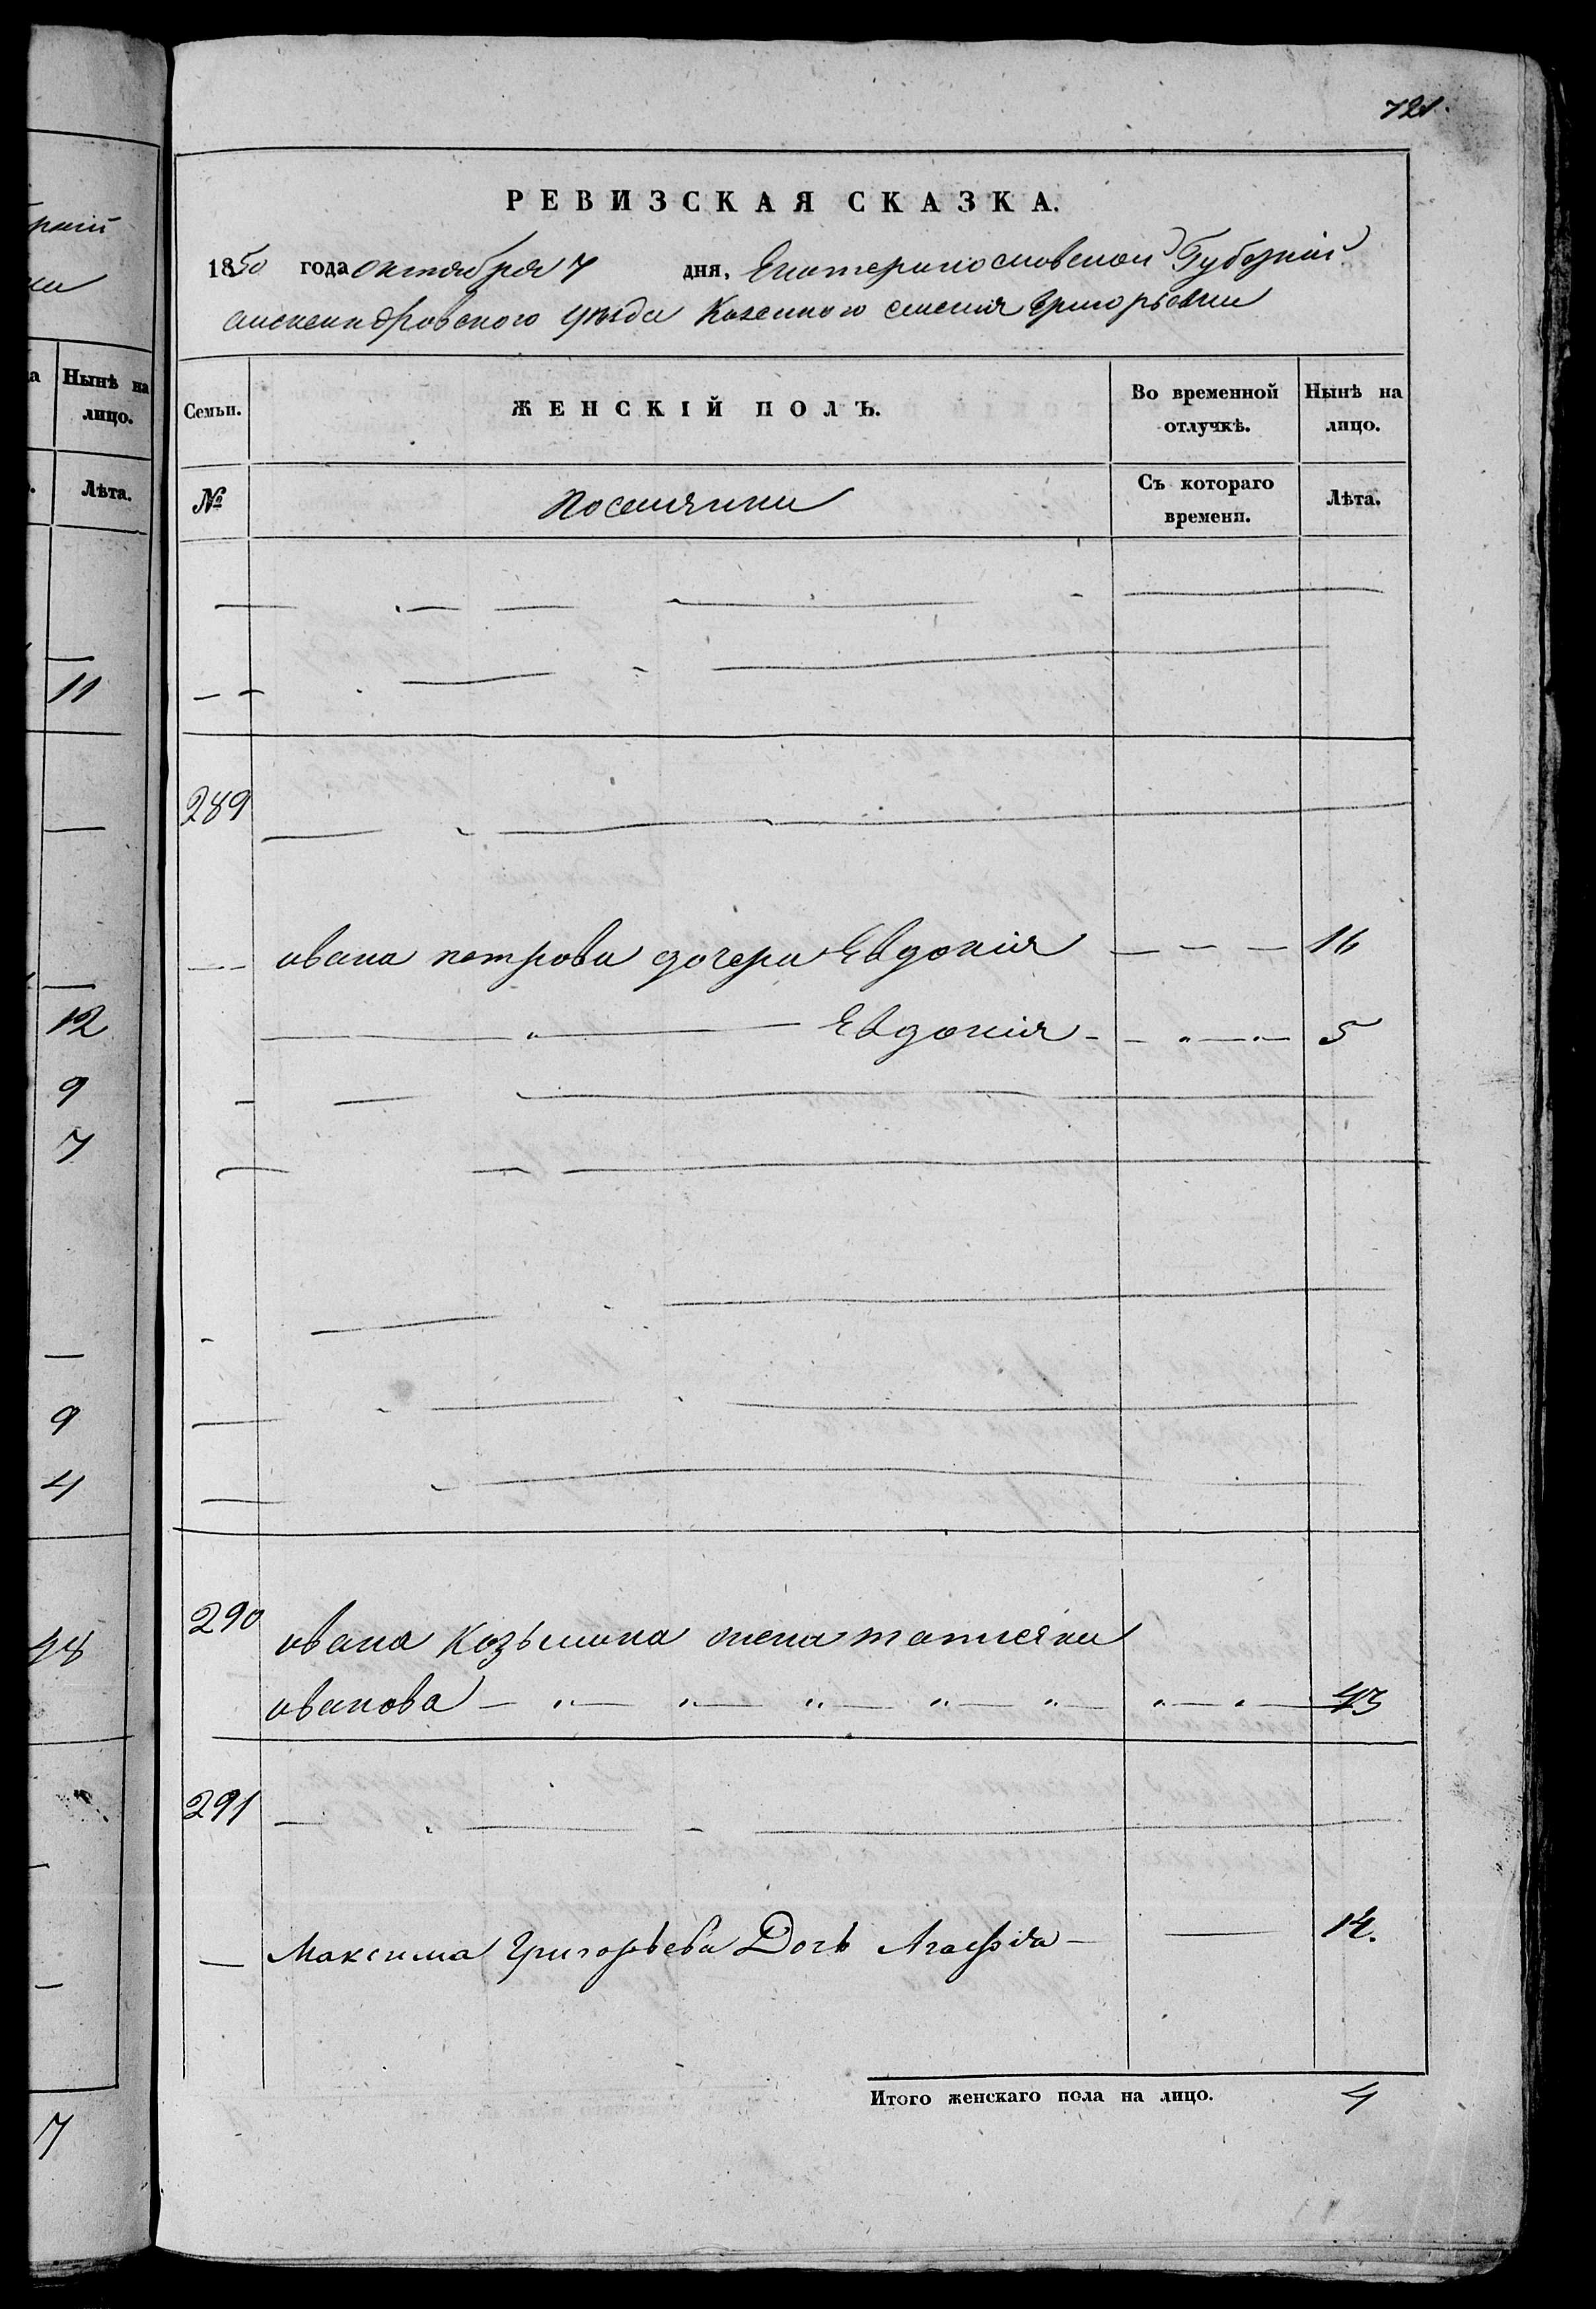 721.
РЕВИЗСКАЯ СКАЗКА.
1850 года октября 7 дня, Екатеринославской Губерніи
александровского уезда Казенного селенія Григорьевки
Семьи.
ЖЕНСКІЙ ПОЛЪ.
Во временной отлучкѣ.
Нынѣ на лицо.
№
Поселянки
Съ котораго времени.
Лѣта.
289
ивана петрова дочери Евдокія — — — 16
— " — Евдокія - - " — " — 5
290 ивана Козьмина жена татіяна
иванова — " — " — " — " — " — " — " — 43
291
— Максима Григорьева Дочь Агафія — — 14.
Итого женскаго пола на лицо. 4
Нынѣ на лицо.
Лѣта.
11
12
9
7
9
4
7